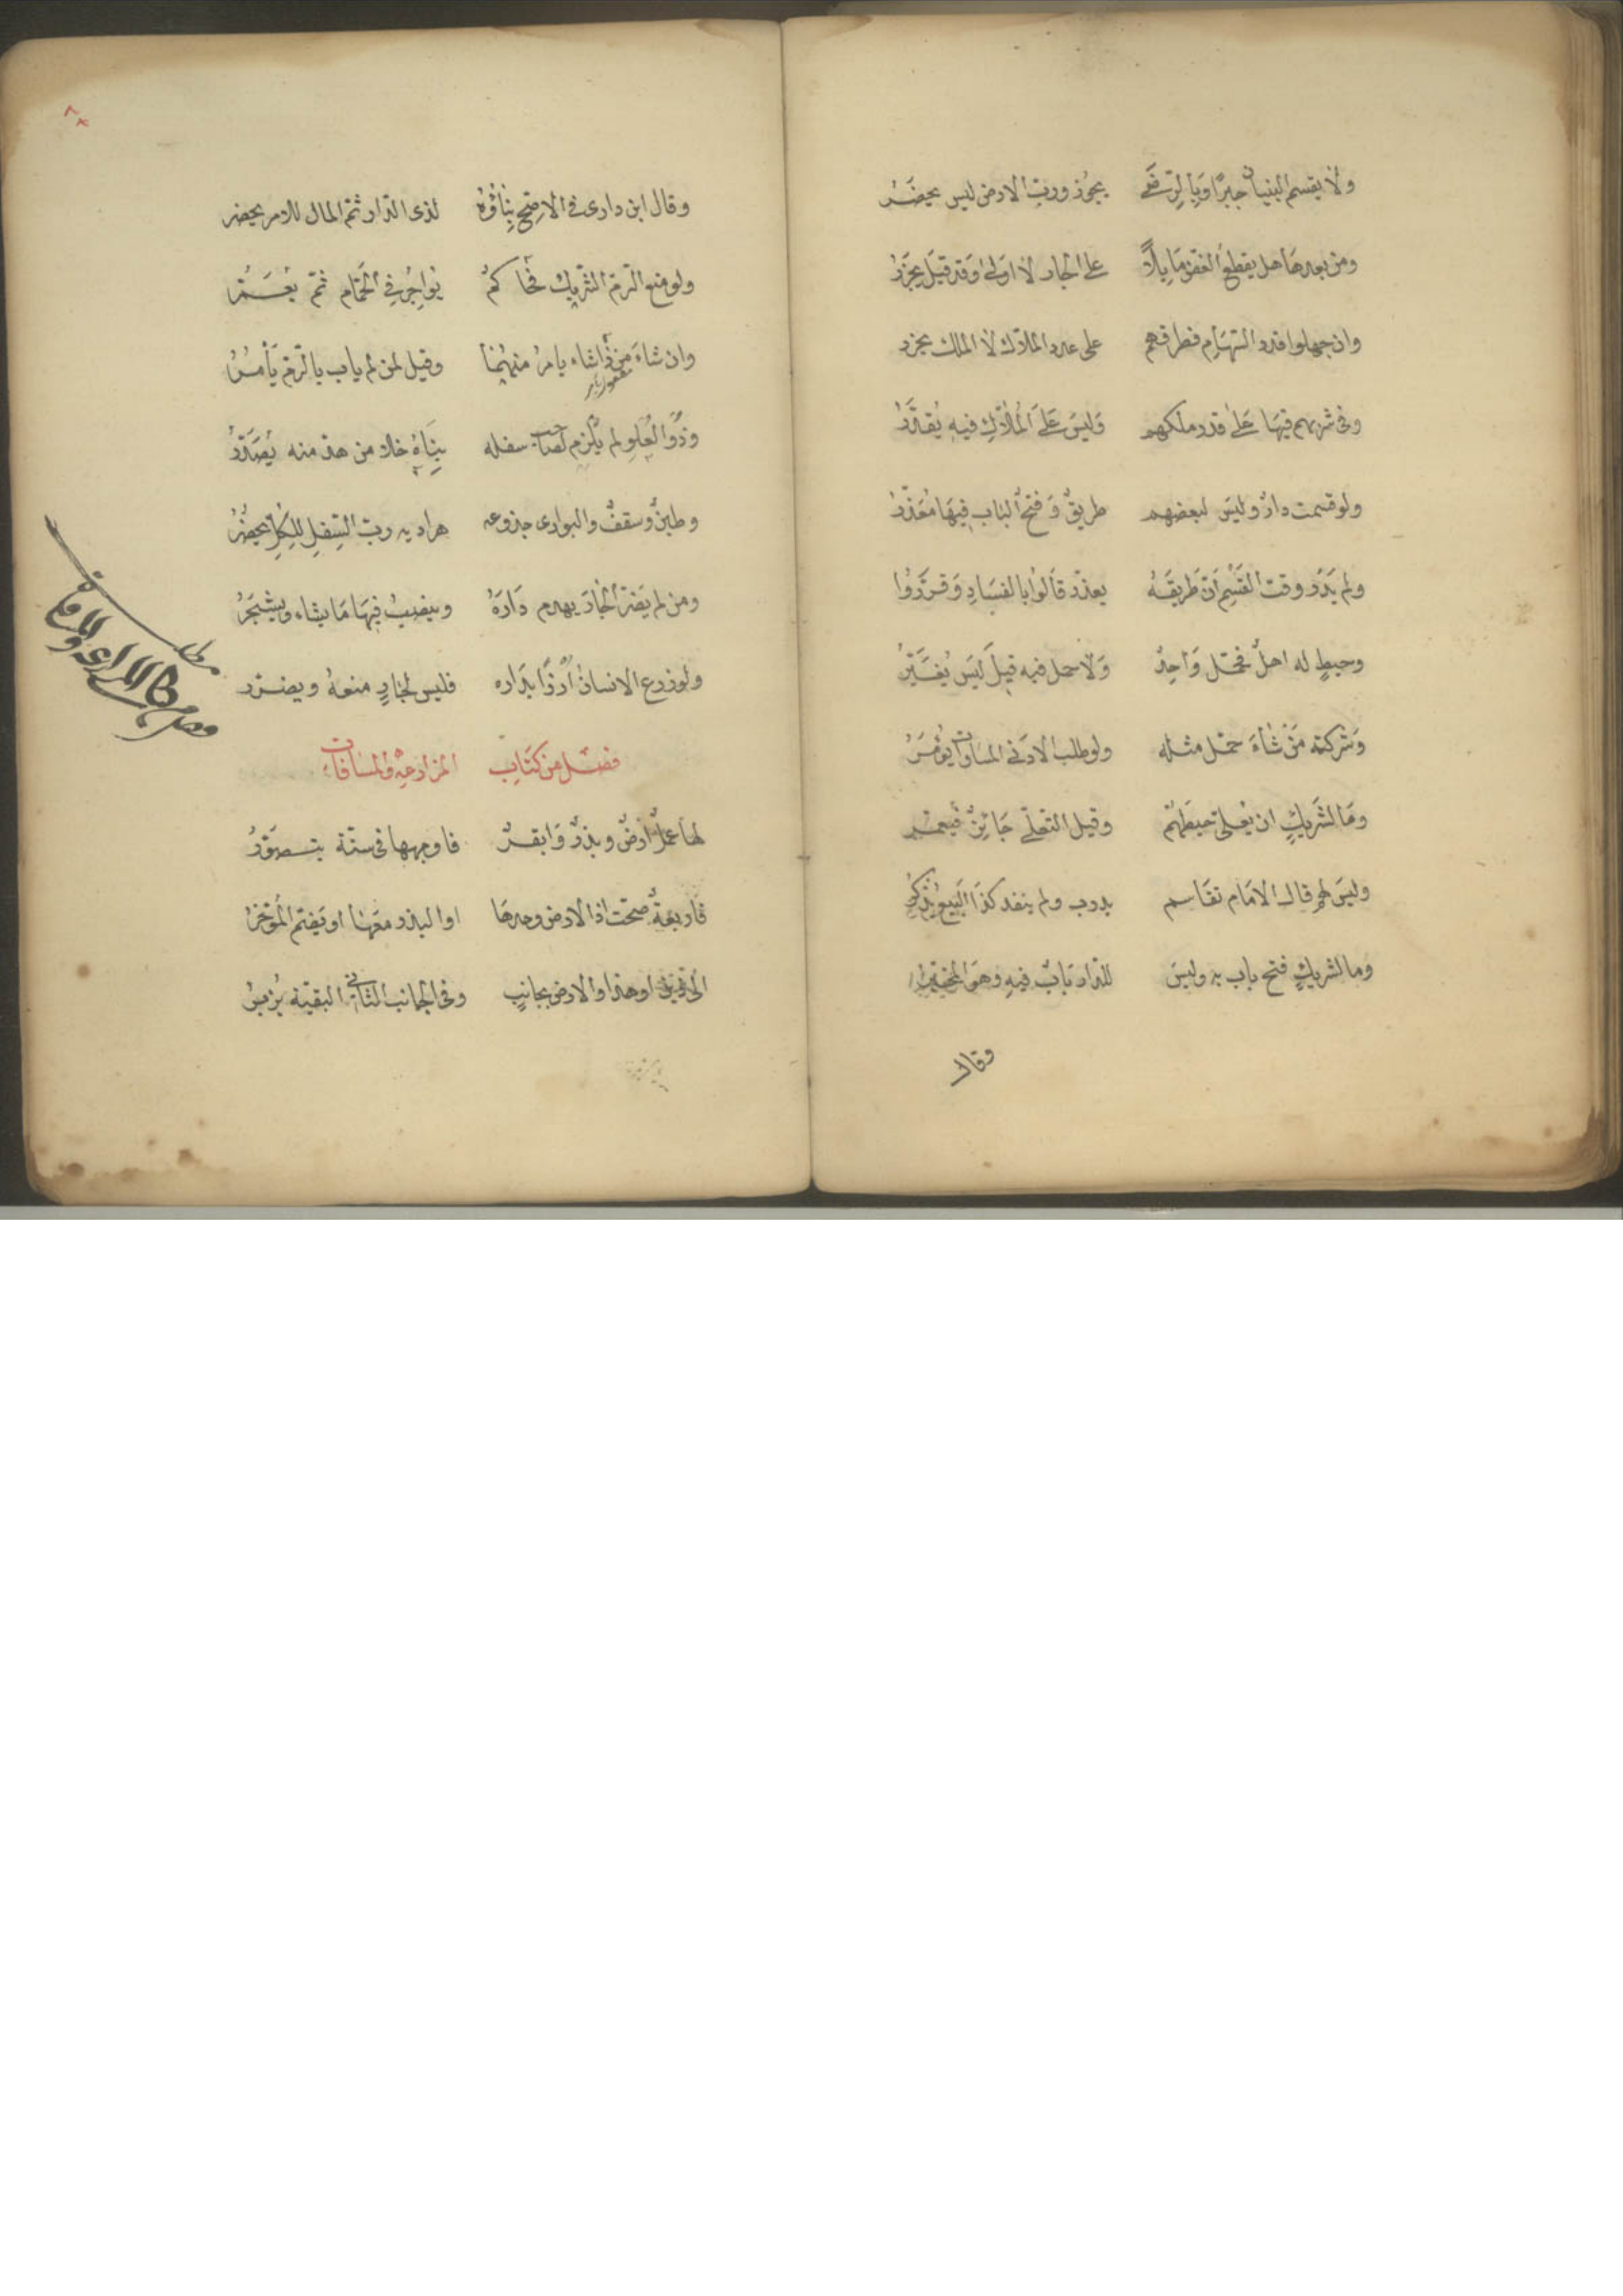 ولا يقسم البنيان جبرا وبالرضى يجوز ورب الارض ليس يحضر
ومن بعدها هل يقطع الغصن مايلا على الجار لا اولى وقد قيل يجزر
وان جهلوا قدر السهام فطرقهم على عدد الملاك لا الملك يجزر
وفي شربهم فيها على قدر ملكهم وليس على الملاك فيه يقدر
ولو قسمت دار وليس لبعضهم طريق وفتح الباب فيها معذر
ولم يدر وقت القسم ان طريقه يعذر قالوا بالفساد وقرروا
وحيط له اهل فحمل واحد ولا حمل فيه قيل ليس يغير
وشركته من شاء حمل مثله ولو طلب الادنى المساواة يؤمر
وما لشريك ان يعلي حيطهم وقيل التعلي جائز فيعمر
وليس لهم قال الامام تقاسم بدرب ولم ينفذ كذا البيع يذكر
وما لشريك فتح باب به وليس للدار باب فيه وهو المخير
وقال
وقال ابن داري في الاصح بناؤه لذي الدار ثم المال للامر يحضر
ولو منع الرم الشريك فحاكم يواجر في الحمام ثم يعمر
وان شاء من ذا شاء يامر منهما وقيل لمن لم ياب بالرم يأمر
وذو العلو لم يلزم لصاحب سفله بناه خلا من هد منه يصدر
وطين وسقف والبواري جذوعه هراديه رب السفل للكل يحضر
ومن لم يضر الجار يهدم داره وينصب فيها ما يشاء ويشجر
ولو زرع الانسان أرزا بداره فليس لجار منعه ويضرر
فصل من كتاب المزارعة والمساقات
لها عمل ارض وبذر وابقر فاوجهها في ستة يتصور
فاربعة صحت اذا الارض وحدها او البذر معها او
او هذا والارض بجانب وفي الجانب الثاني البقية